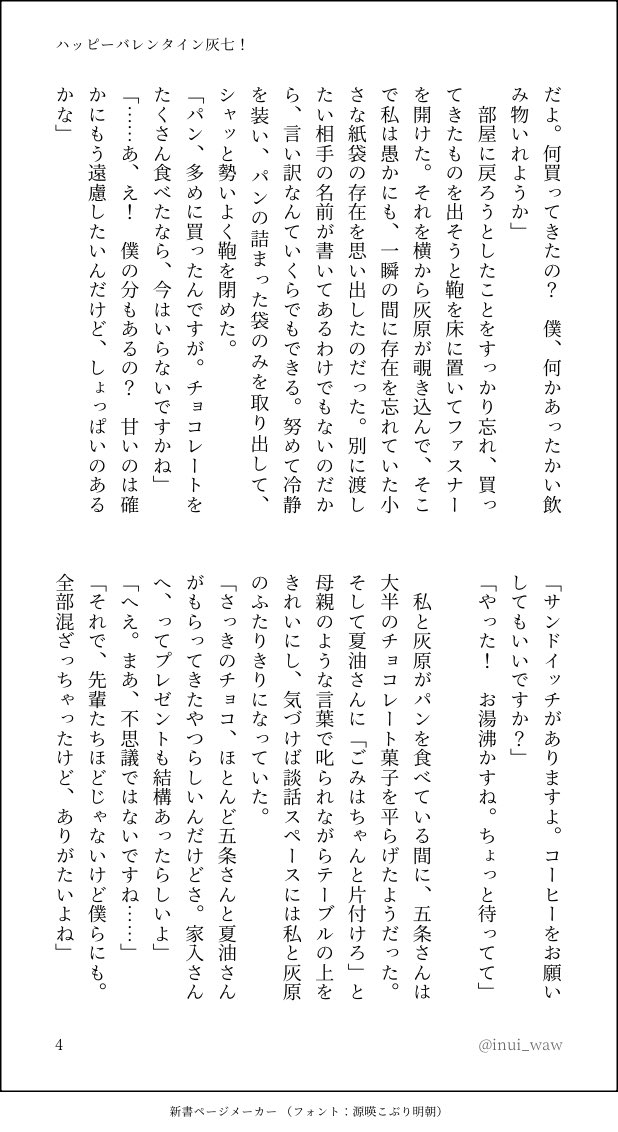 ハッピーバレンタイン灰七！
だよ。何買ってきたの？　僕、何かあったかい飲
み物いれようか」
　部屋に戻ろうとしたことをすっかり忘れ、買っ
てきたものを出そうと鞄を床に置いてファスナー
を開けた。それを横から灰原が覗き込んで、そこ
で私は愚かにも、一瞬の間に存在を忘れていた小
さな紙袋の存在を思い出したのだった。別に渡し
たい相手の名前が書いてあるわけでもないのだか
ら、言い訳なんていくらでもできる。努めて冷静
を装い、パンの詰まった袋のみを取り出して、
シャッと勢いよく鞄を閉めた。
「パン、多めに買ったんですが。チョコレートを
たくさん食べたなら、今はいらないですかね」
「……あ、え！　僕の分もあるの？　甘いのは確
かにもう遠慮したいんだけど、しょっぱいのある
かな」
「サンドイッチがありますよ。コーヒーをお願い
してもいいですか？」
「やった！　お湯沸かすね。ちょっと待ってて」
　私と灰原がパンを食べている間に、五条さんは
大半のチョコレート菓子を平らげたようだった。
そして夏油さんに「ごみはちゃんと片付けろ」と
母親のような言葉で叱られながらテーブルの上を
きれいにし、気づけば談話スペースには私と灰原
のふたりきりになっていた。
「さっきのチョコ、ほとんど五条さんと夏油さん
がもらってきたやつらしいんだけどさ。家入さん
へ、ってプレゼントも結構あったらしいよ」
「へえ。まあ、不思議ではないですね……」
「それで、先輩たちほどじゃないけど僕らにも。
全部混ざっちゃったけど、ありがたいよね」
4
@inui_waw
新書ページメーカー（フォント：源暎こぶり明朝）